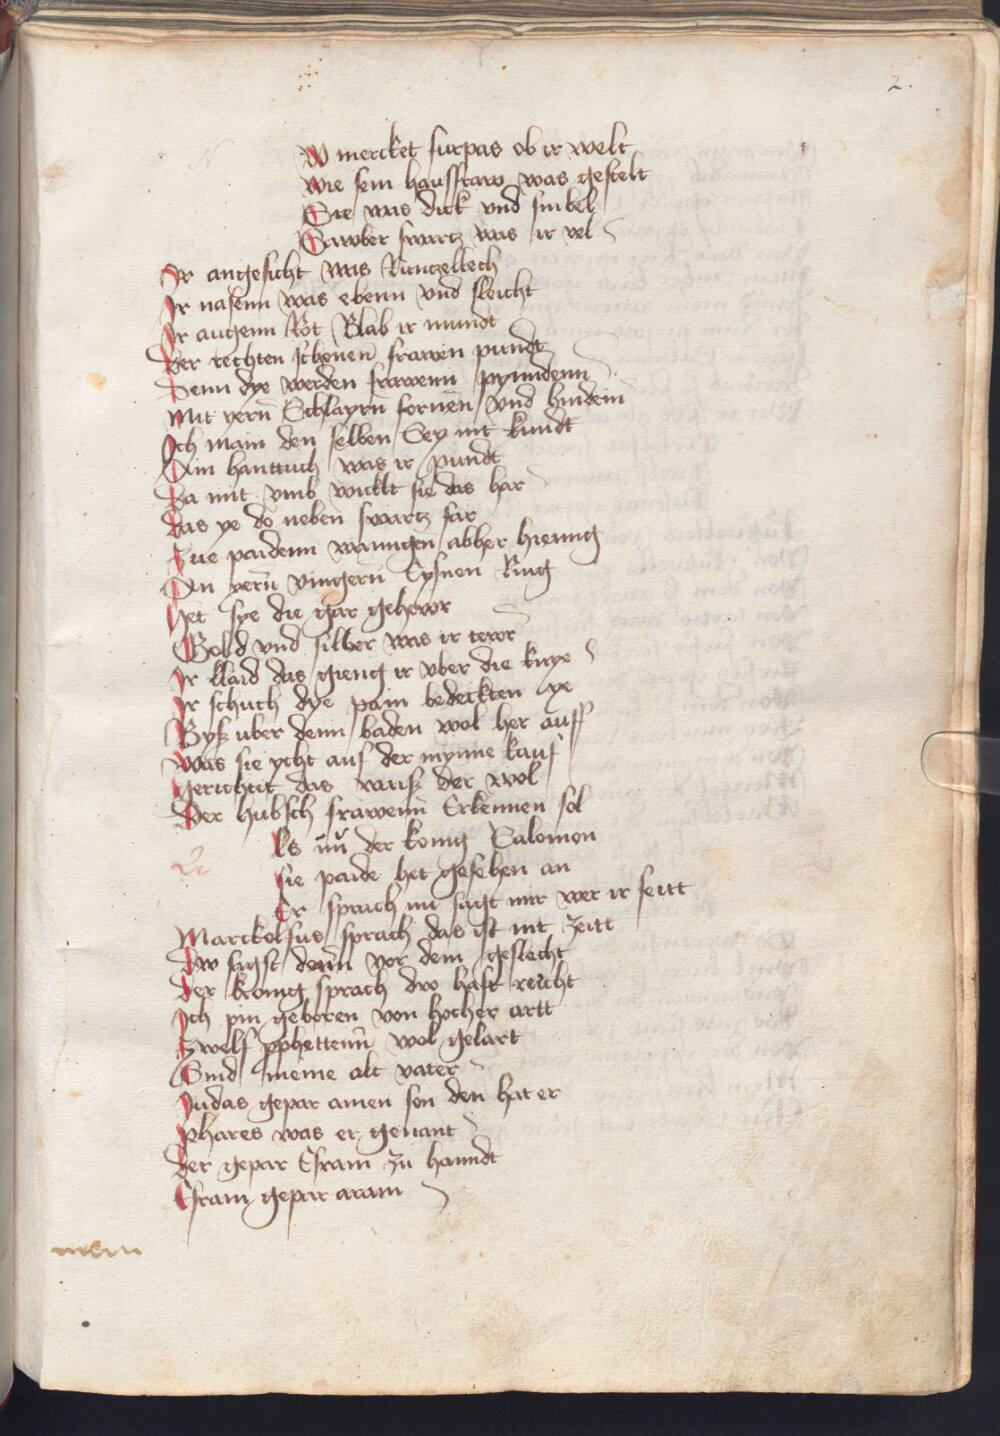 2.
W mercket furpas ob ir welt
Wie sein hausfraw was gestelt
Sie was dick vnd sinbel
Sawber swartz was ir vel
Ir angesicht was Runczellech
Ir nasenn was ebenn vnd sleicht
Ir augenn Rot Blab ir mundt
Der rechten schonen frawen pundt
Denn dye werden frawenn pynndenn
Mit yern Schlayrn fornen vnd hinden
Ich main den selben Sey nit kundt
Ain hanttuch was ir pundt
Da mit vmb wicklt sie das har
Das ye do neben swartz far
Zue paidenn wanngen abher hienng
An yern vingern Eysnen Ring
Het sye die gar gehewr
Gold vnd silber was ir tewr
Ir klaid das gieng ir vber die knye
Ir schuch dye pain bedeckten ye
Byß uber denn baden wol her auff
Was sie ycht auf der mynne kauf
gericht das waiß der wol
Der hubsch frawenn Erkennen sol
ls nu der konig Salomon
Sie paide het gesehen an
Er sprach nu sagt mir wer ir seitt
Marckolfus sprach das ist nit zeitt
Dw sagst denn vor dein geslecht
Der kronig sprach dw hast recht
Ich pin geboren von hocher artt
Zwelf pphettenn wol gelart
Sind meine alt vater
Judas gepar ainen son den hat er
Phares was er genant
Der gepar Esram zu hanndt
Esram gepar aram